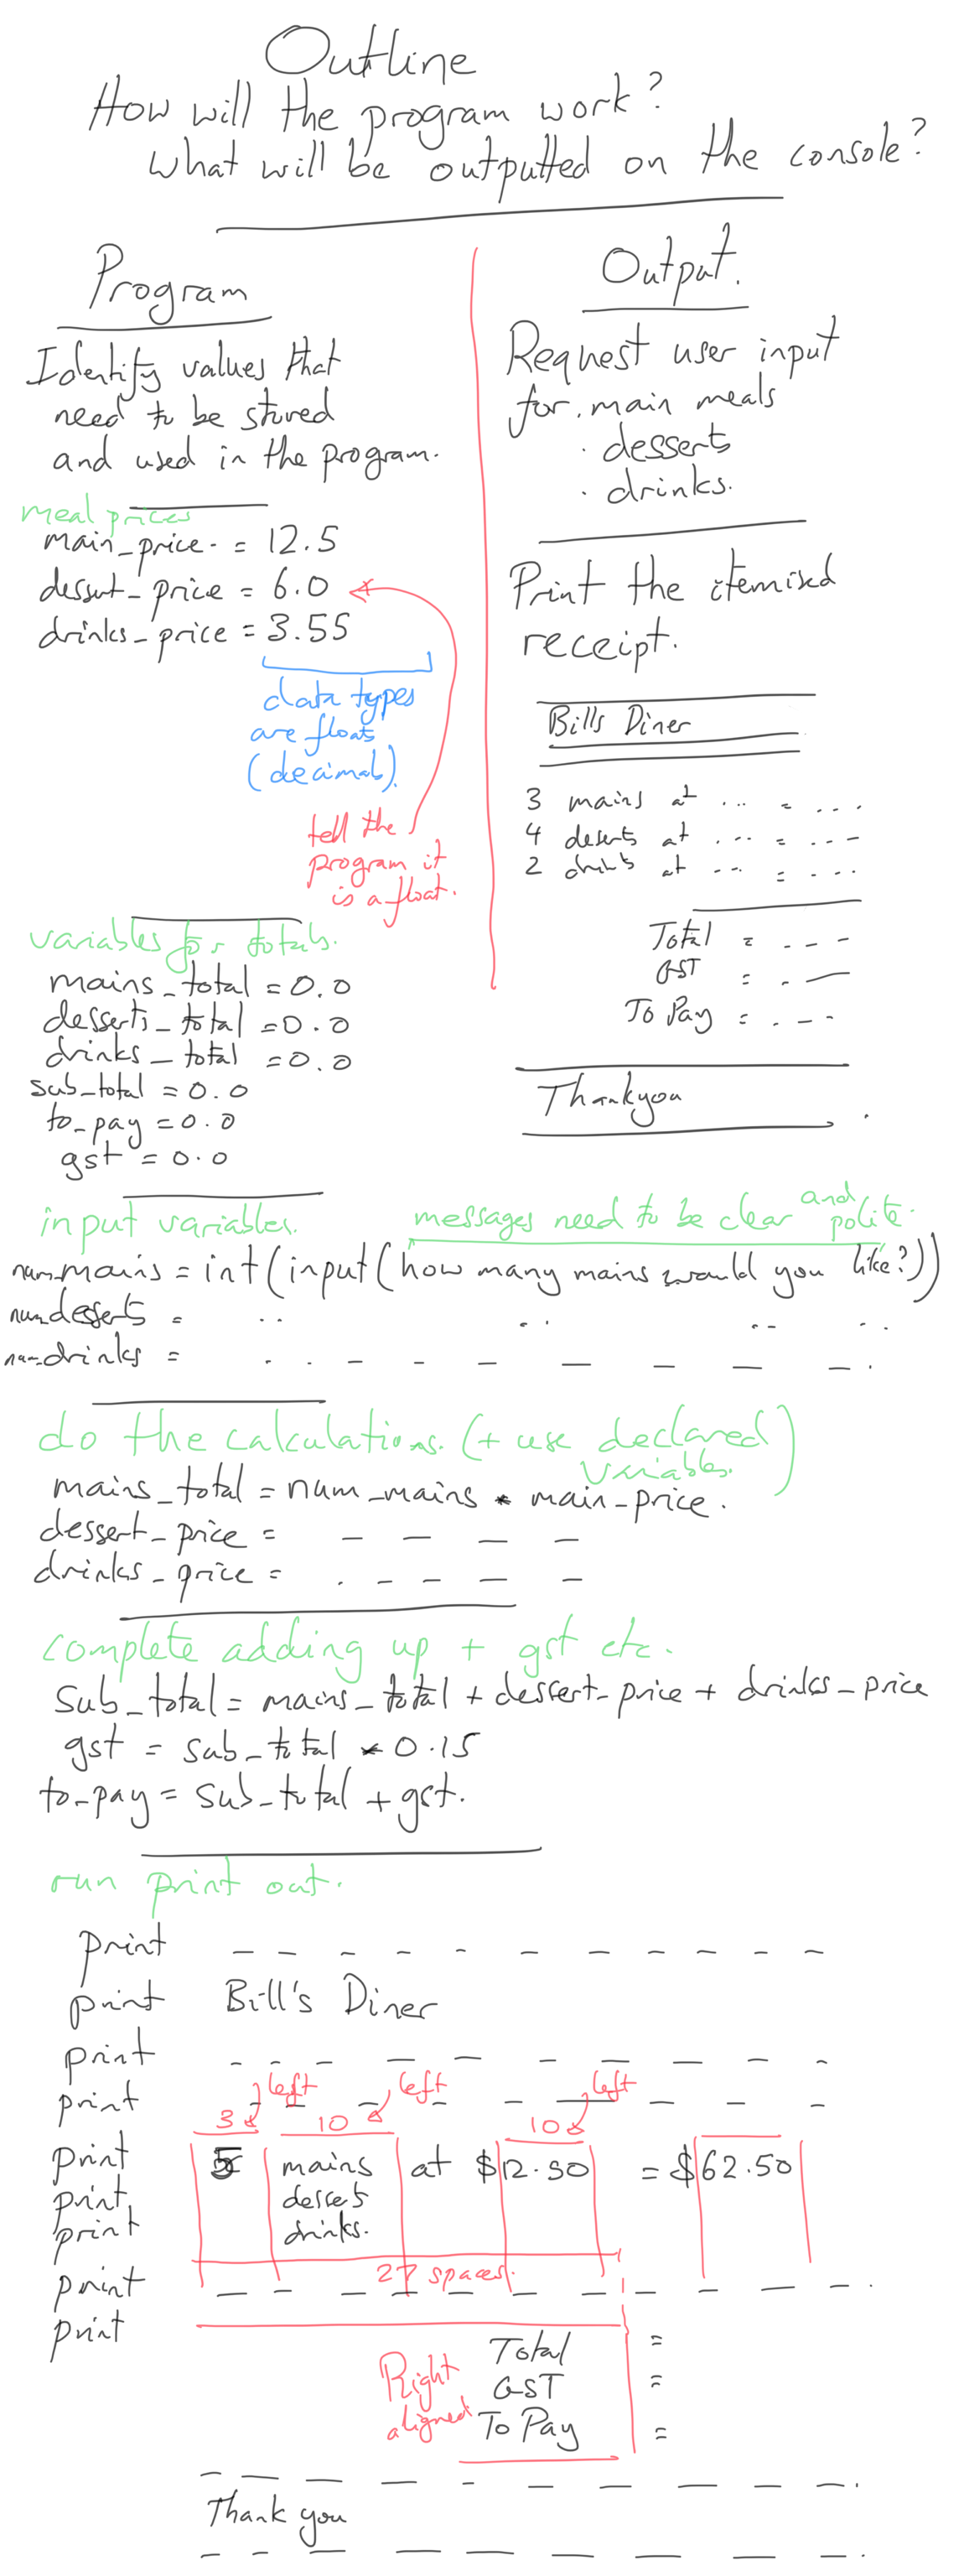 Outline
How will the program work?
what will be outputted on the console?
Program
Identify values that
need to be stored
and used in the program.
meal prices
main_price = 12.5
dessert_price = 6.0
drinks_price = 3.55
data types
are floats
(decimals).
tell the
program it
is a float.
variables for totals.
mains_total = 0.0
desserts_total = 0.0
drinks_total = 0.0
sub_total = 0.0
to_pay = 0.0
gst = 0.0
Output.
Request user input
for . main meals
. desserts
. drinks.
Print the itemised
receipt.
Bills Diner
3 mains at ... = ...
4 deserts at ... = ...
2 drinks at ... = ...
Total = ---
GST = . -
To Pay = . ---
Thankyou
input variables.
messages need to be clear and polite.
num_mains = int(input(how many mains would you like?))
num_desserts = ..
num_drinks = . . - - - - - - - .
do the calculations. (+ use declared
variables.)
mains_total = num_mains * main_price.
dessert_price = - - - -
drinks_price = . - - - -
complete adding up + gst etc.
sub_total = mains_total + dessert_price + drinks_price
gst = sub_total * 0.15
to_pay = sub_total + gst.
run print out.
print - - - - - - - - - - -
print Bill's Diner
print - - - - - - - - - -
left left left
print - - - - - - - -
3 10 10
print 5 mains at $12.50 = $62.50
print desserts
print drinks.
27 spaces
print - - - - - - - - - - .
print
Total =
Right
GST =
aligned
To Pay =
- - - - - - - - - -.
Thank you
- - - - - - - - - .